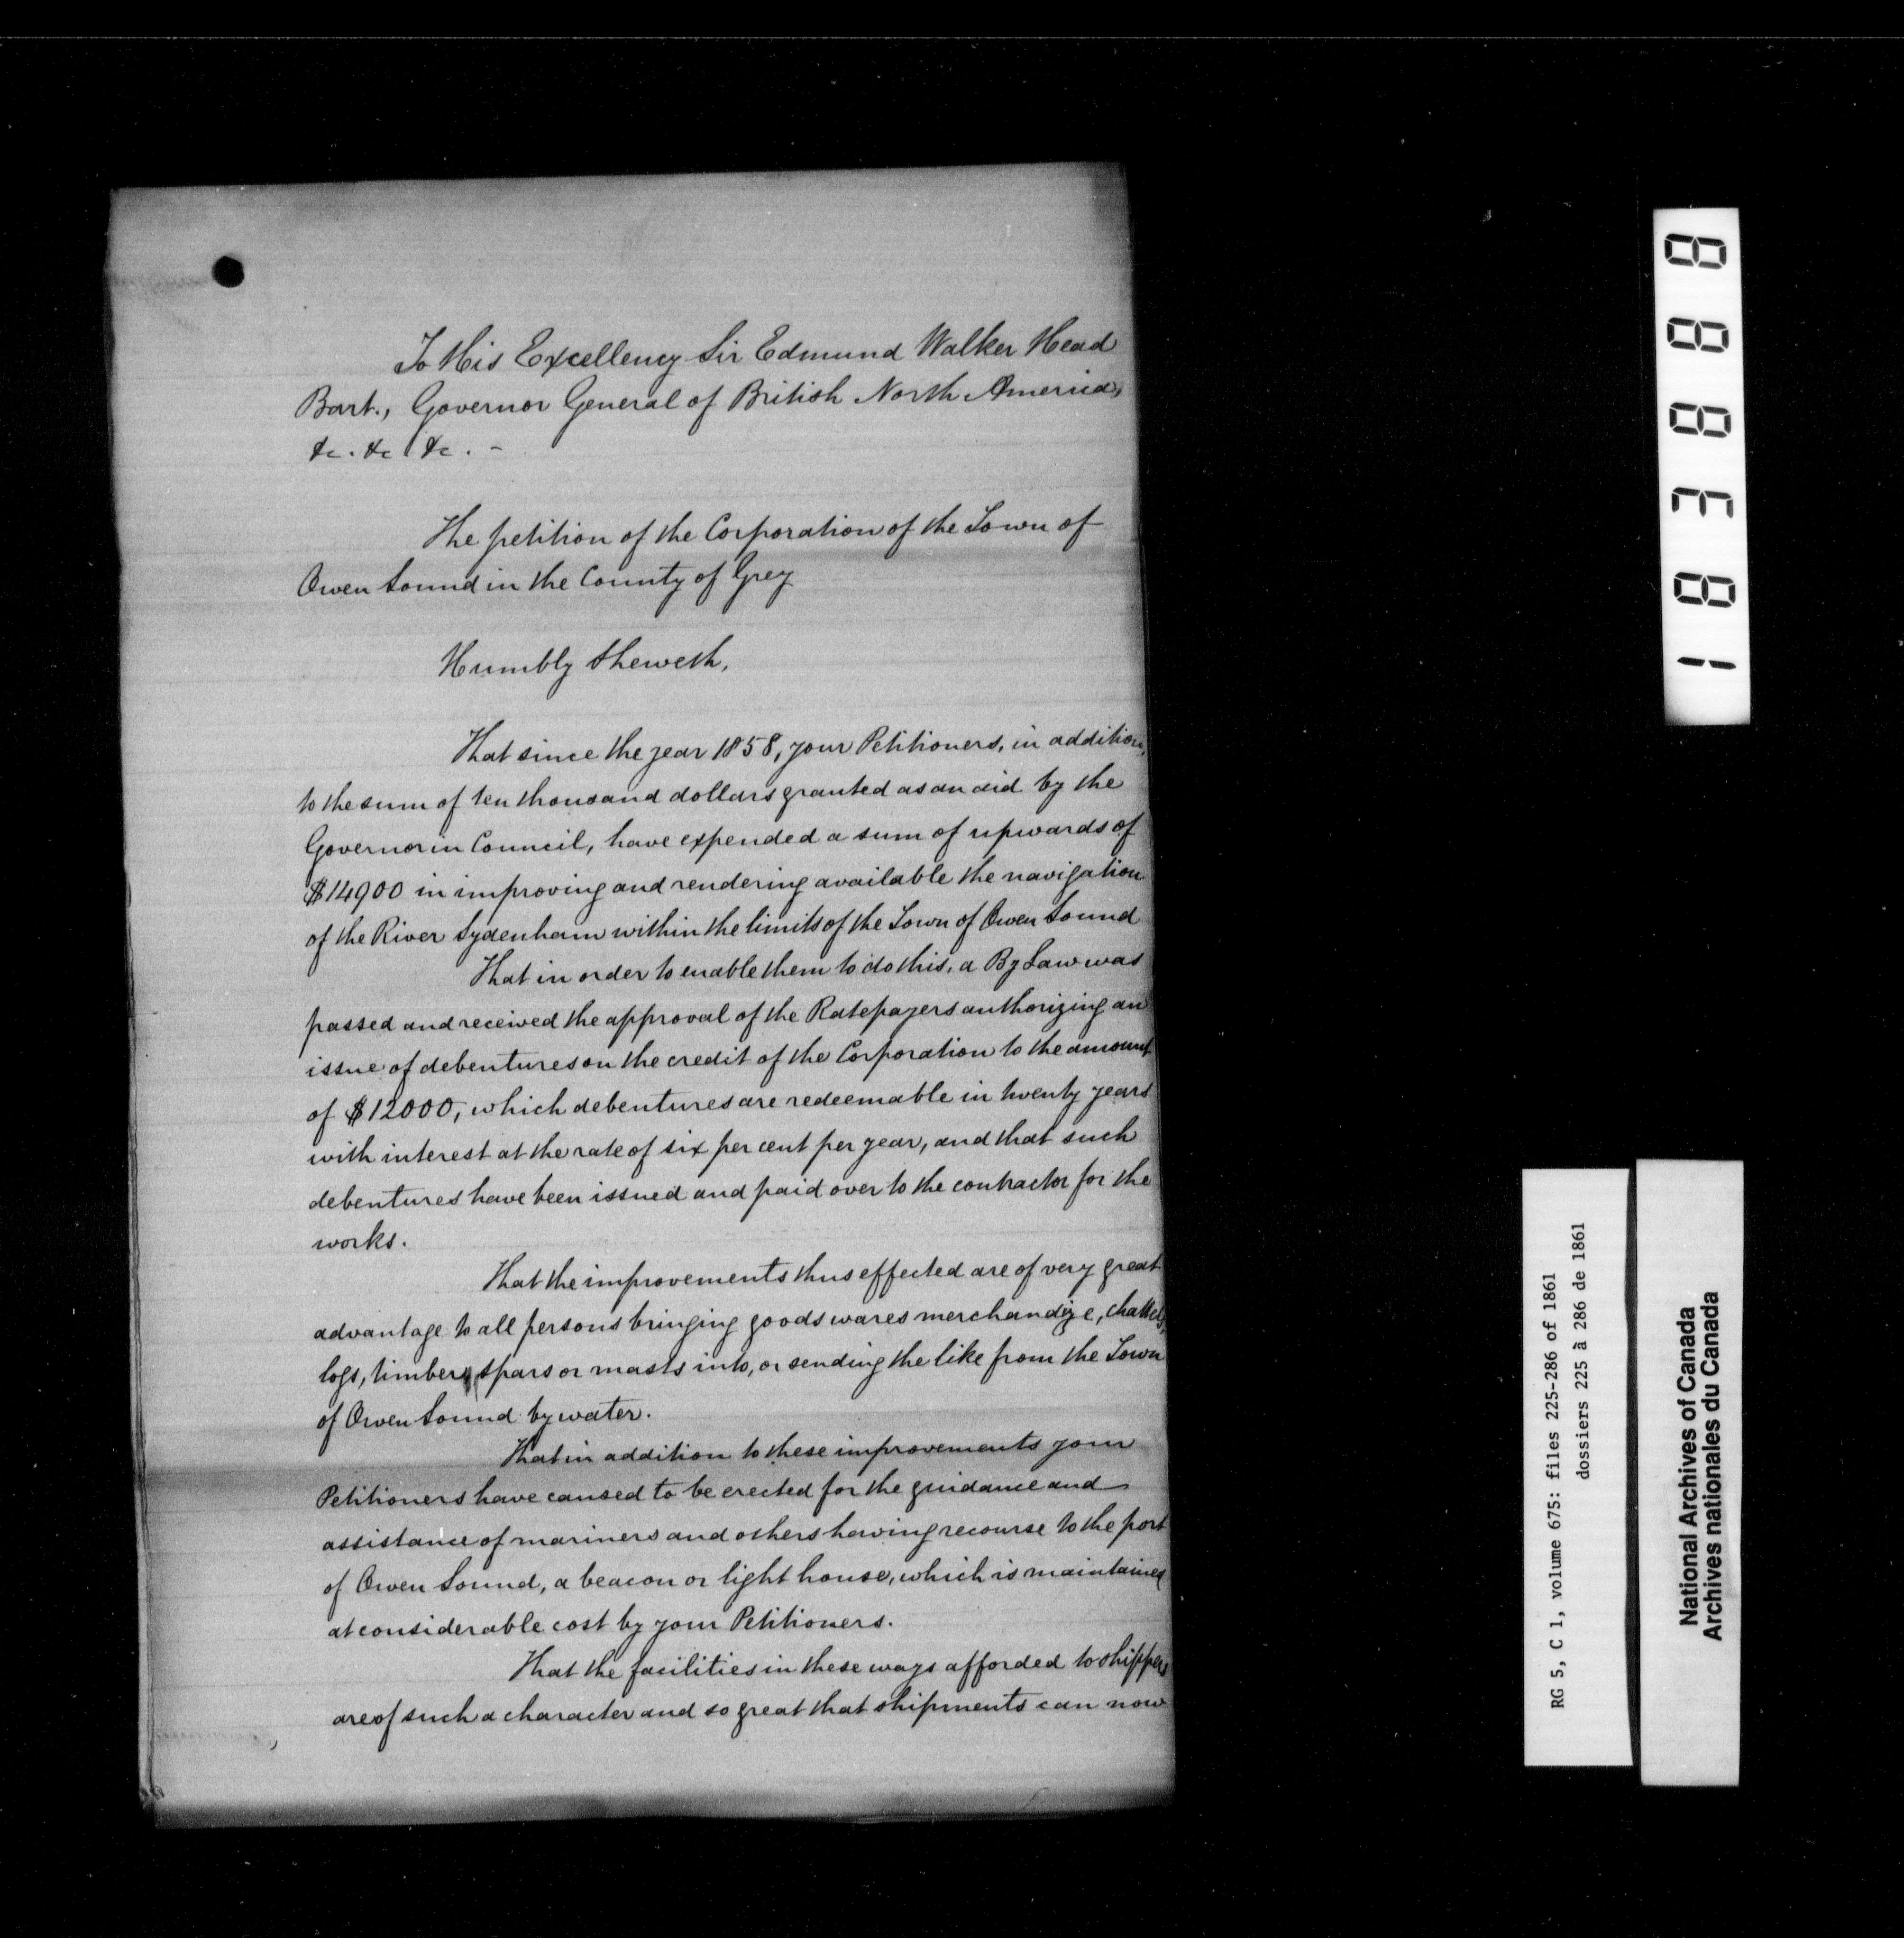 To His Excellency Sir Edmund Walker Head
Bart., Governor General of British North America,
&c. &c &c. -
The petition of the Corporation of the Town of
Owen Sound in the County of Grey
Humbly Sheweth,
That since the year 1858, your Petitioners, in addition,
to the sum of ten thousand dollars granted as an aid by the
Governor in Council, have expended a sum of upwards of
$14900 in improving and rendering available the navigation
of the River Sydenham within the limits of the Town of Owen Sound
That in order to enable them to do this, a By Law was
passed and received the approval of the Ratepayers authorizing an
issue of debentures on the credit of the Corporation to the amount
of $12000, which debentures are redeemable in twenty years
with interest at the rate of six per cent per year, and that such
debentures have been issued and paid over to the contractor for the
works.
That the improvements thus effected are of very great
advantage to all persons bringing goods wares merchandize, chattels,
logs, timber, spars or masts into, or sending the like from the Town
of Owen Sound by water.
That in addition to these improvements your
Petitioners have caused to be erected for the guidance and
assistance of mariners and others having recourse to the port
of Owen Sound, a beacon or light house, which is maintained
at considerable cost by your Petitioners.
That the facilities in these ways afforded to shippers
are of such a character and so great that shipments can now
183888
RG 5, C 1, volume 675: files 225-286 of 1861
dossiers 225 à 286 de 1861
National Archives of Canada
Archives nationales du Canada